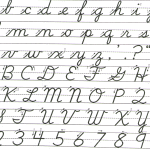 b c d e f g h i j
m n o p q r s
v w x y z . . ? "
B C D E F G H
K L M N O P
T U V W X Y
2 3 4 5 6 7 8 9